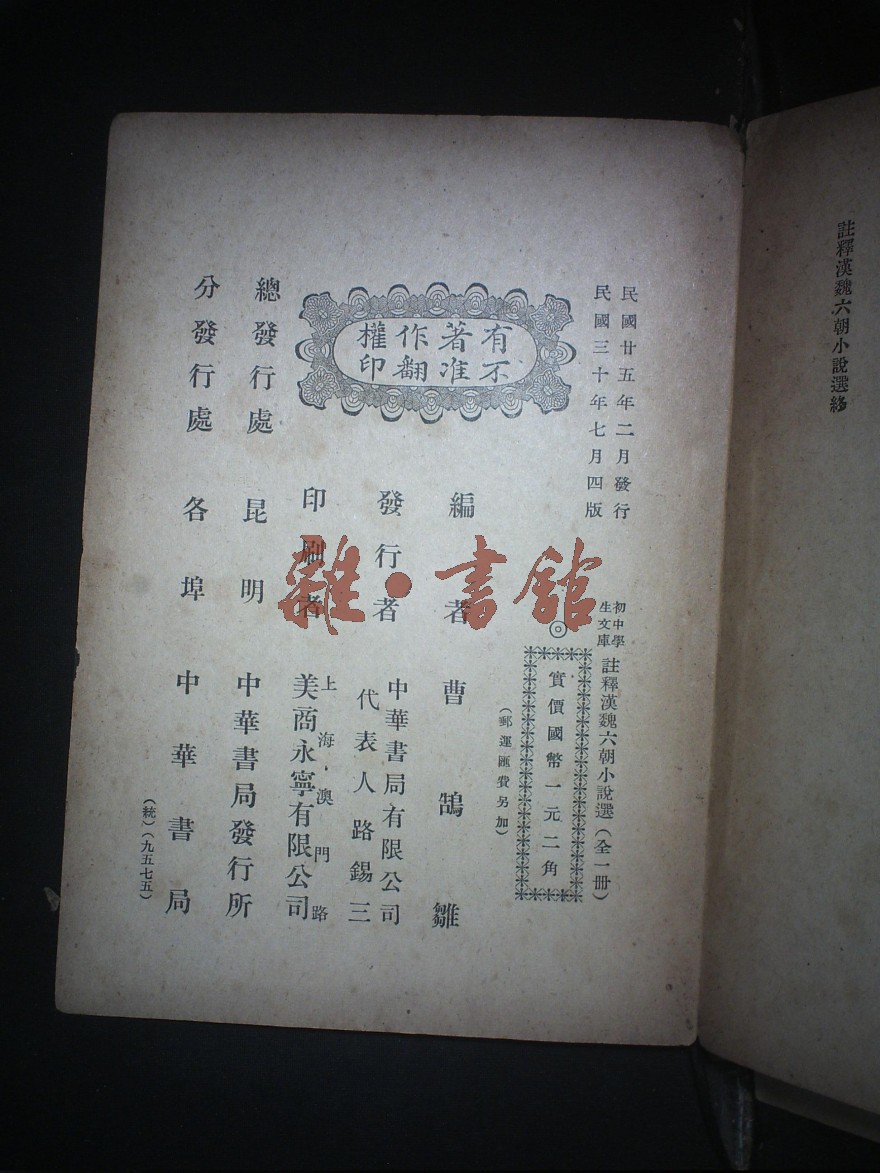 註釋漢魏六朝小說選終
民國廿五年二月發行
民國三十年七月四版
有著作權
不准翻印
初中學
生文庫
註釋漢魏六朝小說選（全一冊）
◎
實價國幣一元二角
（郵運匯費另加）
編者 曹鵠雛
發行者 中華書局有限公司
代表人路錫三
印刷者 上海·澳門路
美商永寧有限公司
總發行處 昆明 中華書局發行所
分發行處 各埠 中華書局
（統）（九五七五）
雜·書館